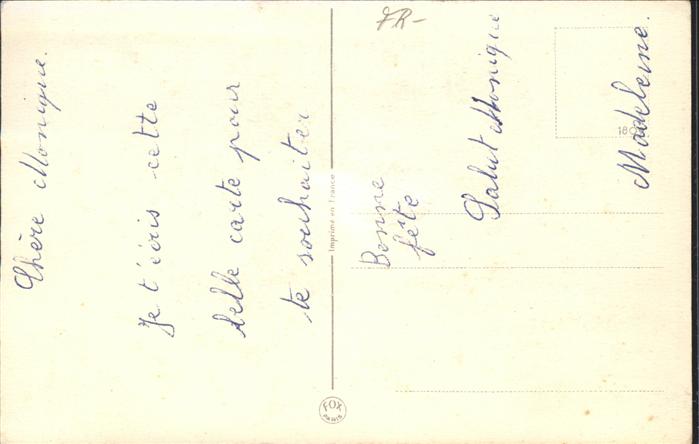 Chère Monique.
Je t'écris cette
belle carte pour
te souhaiter
Bonne
fête
Salut Monique
Madeleine.
FR-
Imprimé en France
FOX
PARIS